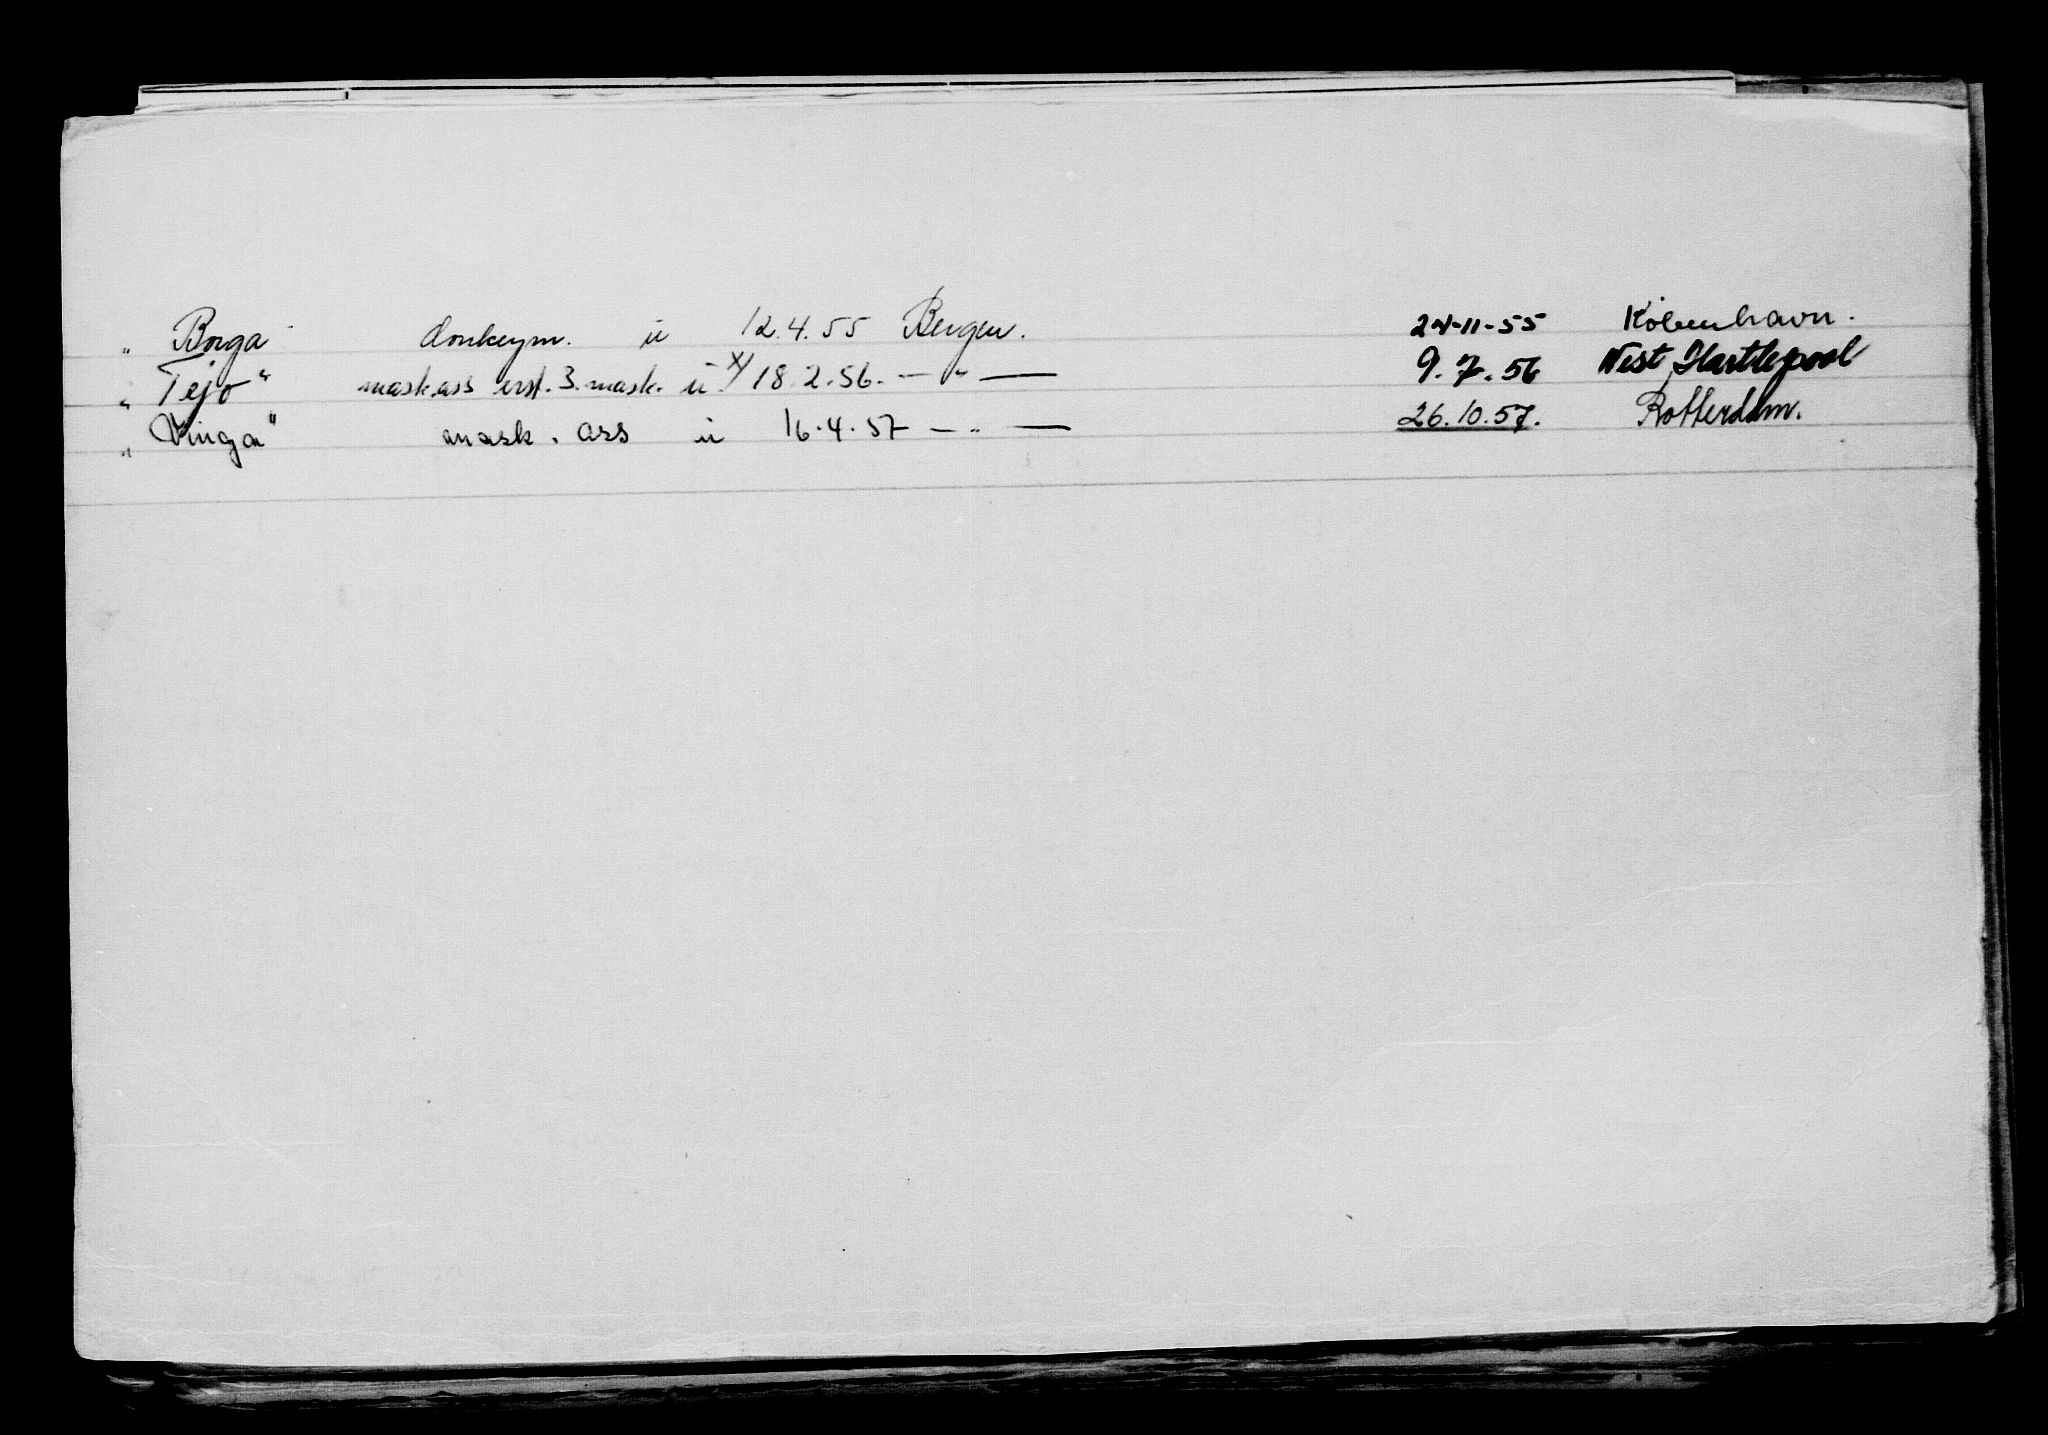 " Borga donkeym. u 12.4.55 Bergen. 24-11-55 København.
" Tejo" mask.ass erst. 3. mask. u x/ 18.2.56. — " — 9.7.56 West Hartlepool
" Vinga" mask. ass u 16.4.57 — " — 26.10.57. Rotterdam.